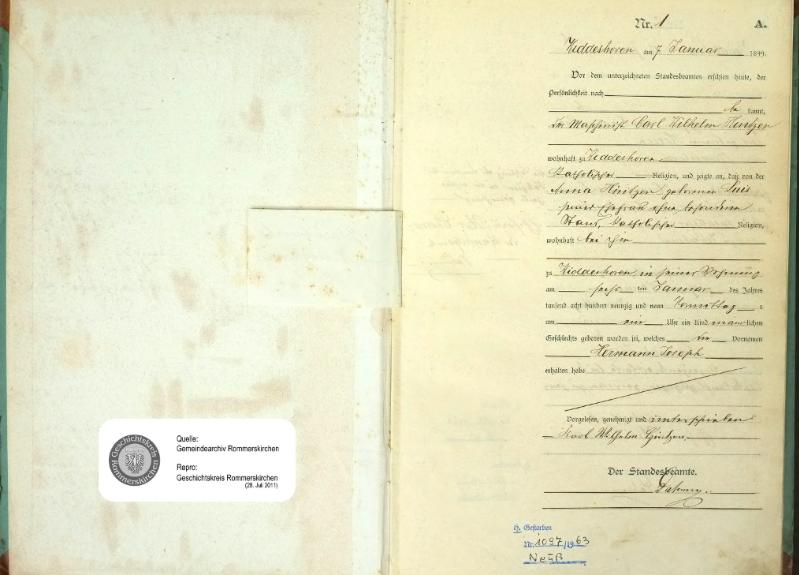 Quelle:
Gemeindearchiv Rommerskirchen
Repro:
Geschichtskreis Rommerskirchen
(28. Juli 2011)
Geschichtskreis
Rommerskirchen
Nr. 1
A.
Widdeshoven am 7 Januar 1899.
Vor dem unterzeichneten Standesbeamten erschien heute, der
Persönlichkeit nach
be kannt,
der Maschinist Carl Wilhelm Hintzen
wohnhaft zu Widdeshoven
katholischer Religion, und zeigte an, daß von der
Anna Hintzen geborenen
seiner Ehefrau ohne besonderen
Stand, katholischer Religion,
wohnhaft bei ihm
zu Widdeshoven in seiner Wohnung
am sechs ten Januar des Jahres
tausend acht hundert neunzig und neun Vormittag s
um Uhr ein Kind männlichen
Geschlechts geboren worden sei, welches die Vornamen
Hermann Joseph
erhalten habe
Vorgelesen, genehmigt und unterschrieben
Karl Wilhelm Hintzen
Der Standesbeamte.
Gestorben
Nr. 1097/1963
Neuß